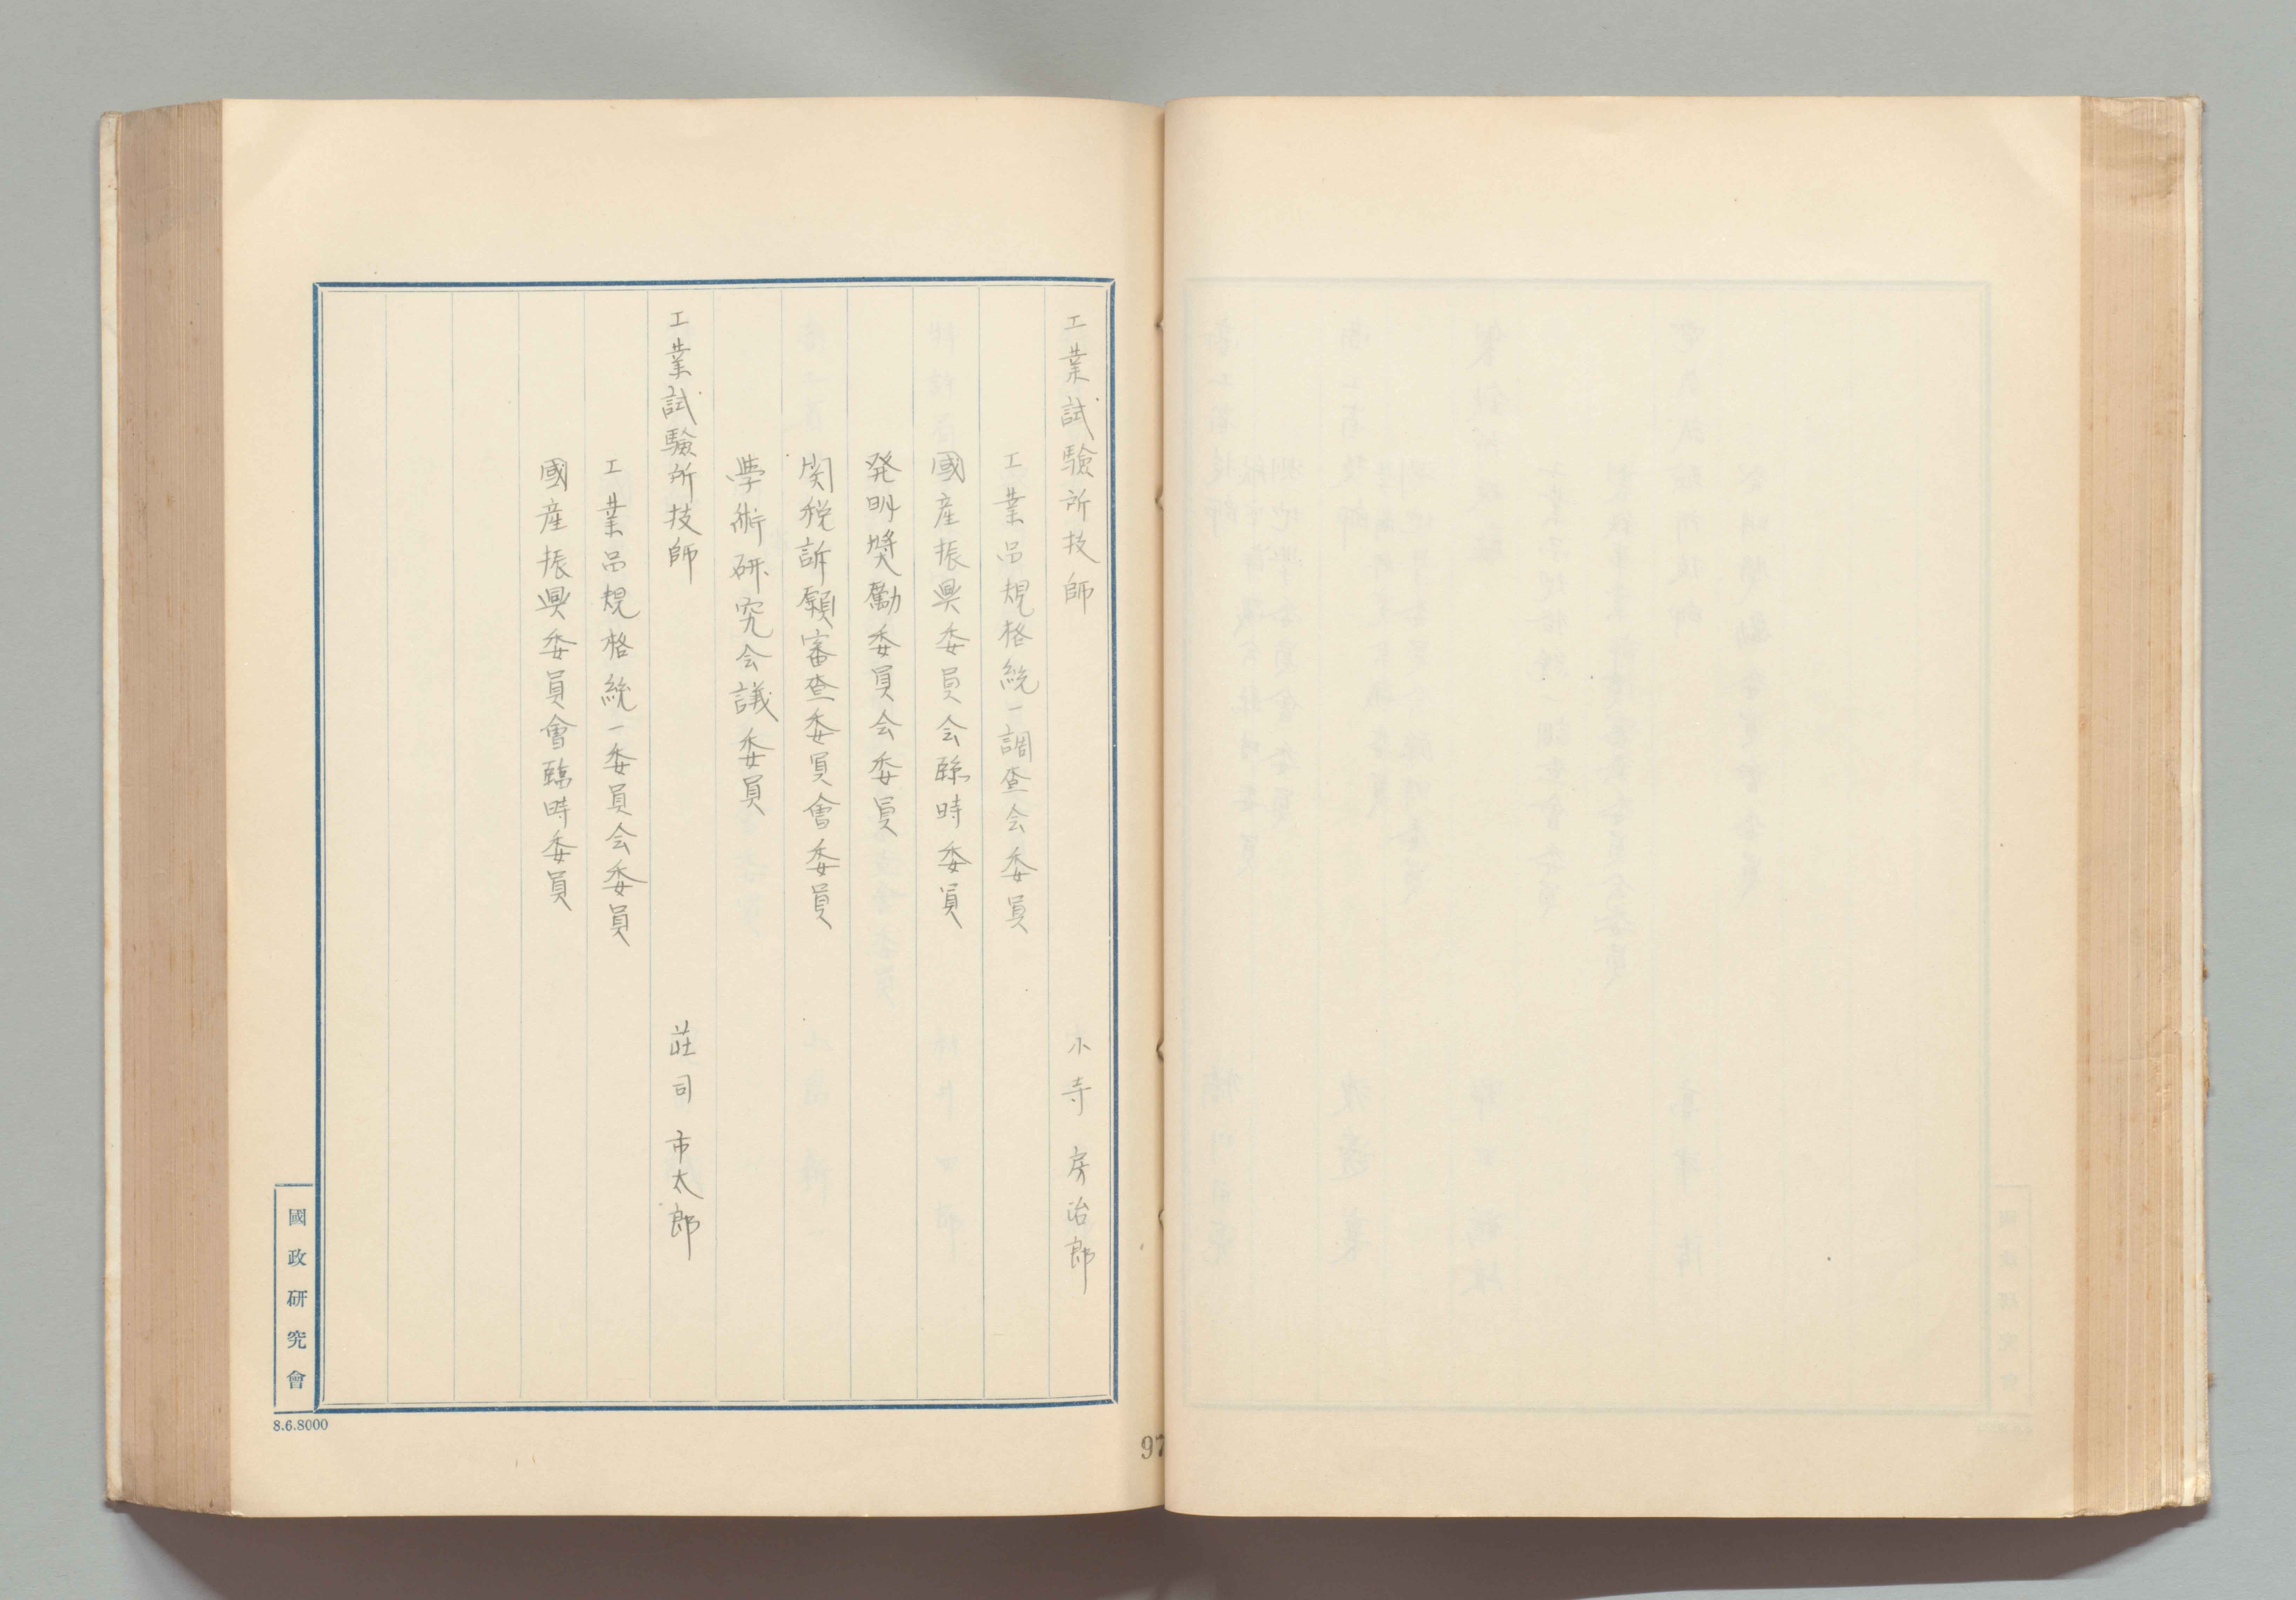 工業試驗所技師　小寺房治郎
工業品規格統一調査会委員
國産振興委員会臨時委員
発明奨勵委員会委員
関税訴願審査委員會委員
學術研究会議委員
工業試驗所技師　莊司市太郎
工業品規格統一委員会委員
國産振興委員會臨時委員
國政研究會
8.6.8000
97